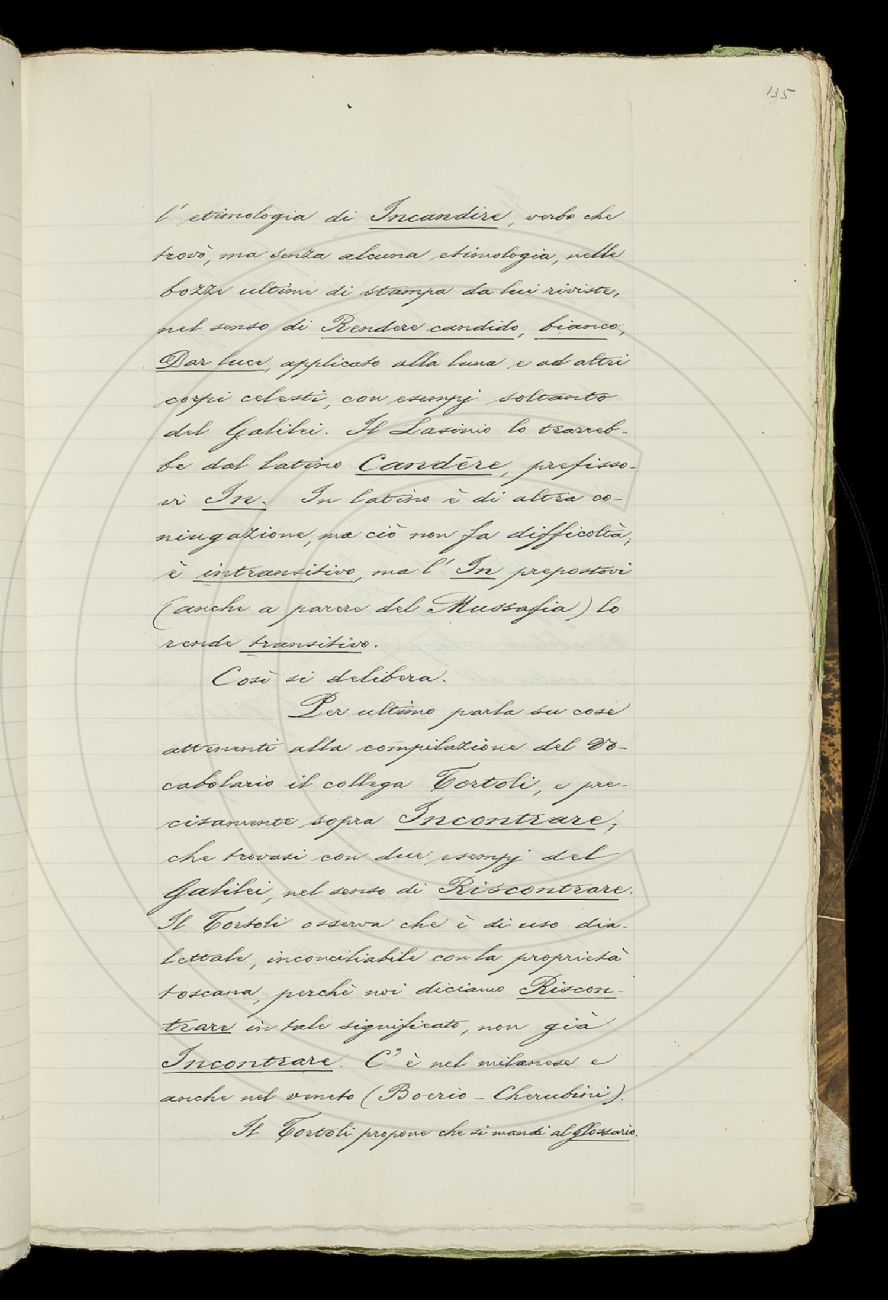 135
l' etimologia di Incandire, verbo che
trovò, ma senza alcuna etimologia, nelle
bozze ultime di stampa da lui riviste,
nel senso di Rendere candido, bianco,
Dar luce, applicato alla luna e ad altri
corpi celesti, con esempj soltanto
del Galilei. Il Lasinio lo trarreb-
be dal latino Candēre, prefisso-
vi In. In latino è di altra co-
niugazione, ma ciò non fa difficoltà;
è intransitivo, ma l' In prepostovi
(anche a parere del Mussafia) lo
rende transitivo.
Così si delibera.
Per ultimo parla su cose
attenenti alla compilazione del Vo-
cabolario il collega Tortoli, e pre-
cisamente sopra Incontrare,
che trovasi con due esempj del
Galilei, nel senso di Riscontrare.
Il Tortoli osserva che è di uso dia-
lettale, inconciliabile con la proprietà
toscana, perchè noi diciamo Riscon-
trare in tale significato, non già
Incontrare. C' è nel milanese e
anche nel veneto (Boerio - Cherubini).
Il Tortoli propone che si mandi al Glossario.